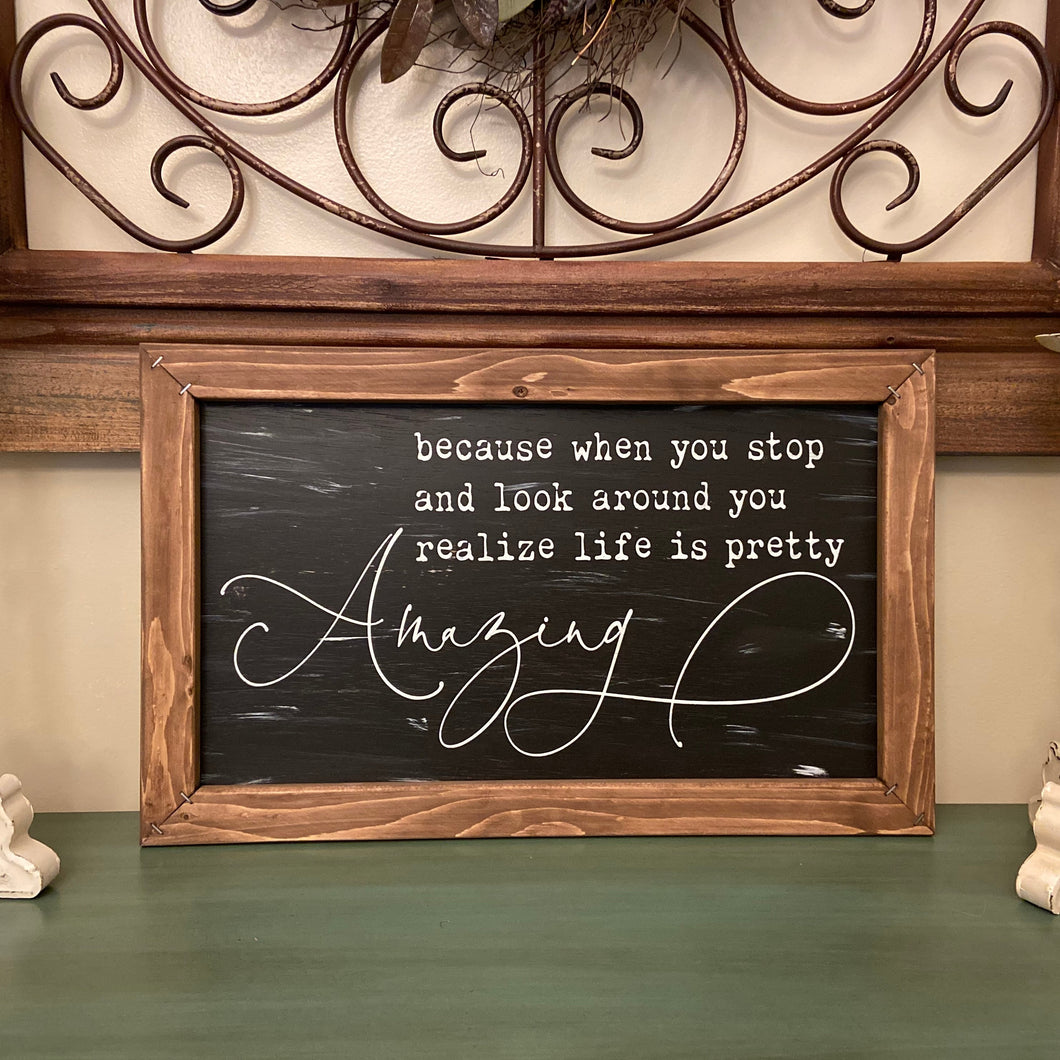 because when you stop
and look around you
realize life is pretty
Amazing